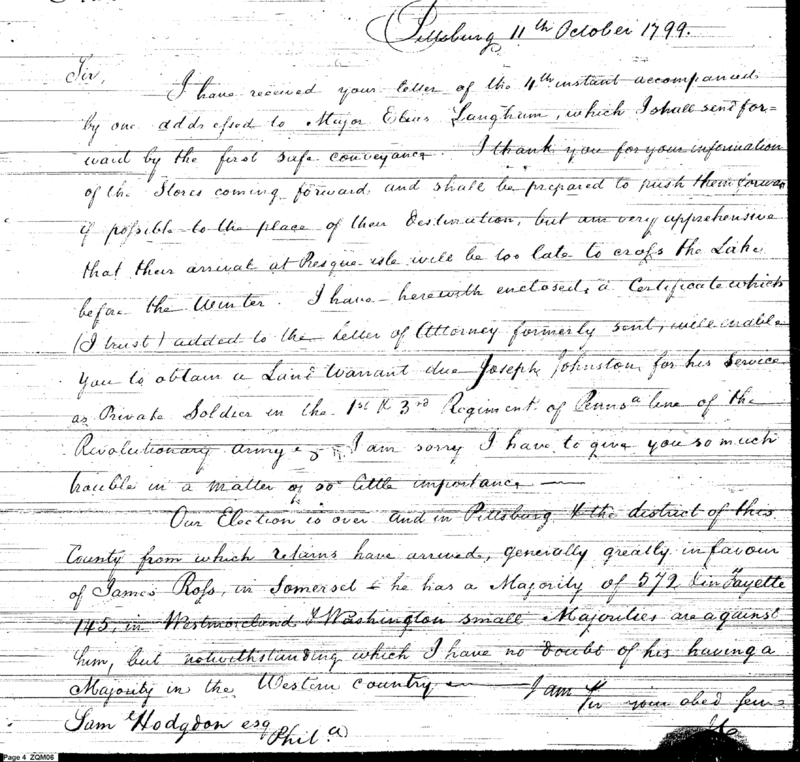 Pittsburg 11th October 1799.
Sir,
I have received your letter of the 4th instant accompanied
by one addressed to Major Elias Langham, which I shall send for=
ward by the first safe conveyance. I thank you for your information
of the Stores coming forward and shall be prepared to push them forward
if possible to the place of their Destination, but am very apprehensive
that their arrival at Presque-isle will be too late to cross the Lake
before the Winter. I have herewith enclosed, a Certificate which
(I trust) added to the Letter of Attorney formerly sent, will enable
you to obtain a Land Warrant due Joseph Johnston for his Service
as Private Soldier in the 1st & 3rd Regiment of Penns.a line of the
Revolutionary army I am sorry I have to give you so much
trouble in a matter of so little importance —
Our Election is over and in Pittsburg & the district of this
County from which returns have arrived, generally greatly in favour
of James Ross, in Somerset he has a Majority of 572 & in Fayette
145, in Westmoreland & Washington small Majorities are against
him, but notwithstanding which I have no doubt of his having a
Majority in the Western Country — I am
Sir your obed Serv
Sam Hodgdon esq
Phil.a
Page 4 ZQM06